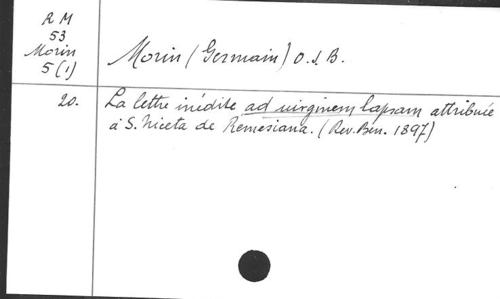 R M
53
Morin
5(1)
Morin (Germain) O.S.B.
20.
La lettre inédite ad virginem lapsam attribuée
à S. Niceta de Remesiana. (Rev. Ben. 1897)